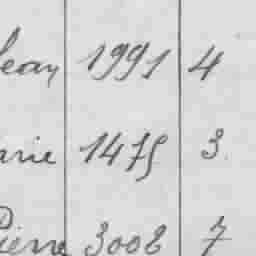 Jean 1991 4
arie 1475 3.
Pierre 3008 7